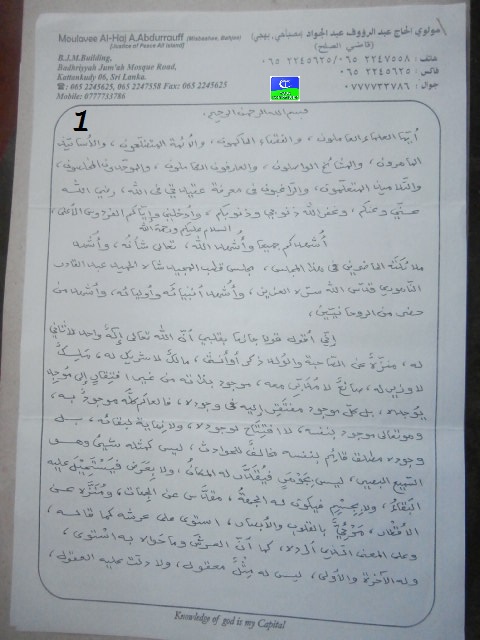 Moulavee Al-Haj A.Abdurrauff (Misbaahee, Bahjee)
[Justice of Peace All Island]
B.J.M.Building,
Badhriyyah Jum'ah Mosque Road,
Kattankudy 06, Sri Lanka.
☎: 065 2245625, 065 2247558 Fax: 065 2245625
Mobile: 0777733786
مولوي الحاج عبد الرؤوف عبد الجواد (مصباحي، بهجي)
(قاضي الصلح)
هاتف : ٠٦٥ ٢٢٤٥٦٢٥/٠٦٥ ٢٢٤٧٥٥٨
فاكس : ٠٦٥ ٢٢٤٥٦٢٥
جوال : ٠٧٧٧٧٣٣٧٨٦
1
بسم الله الرحمن الرحيم
أيها العلماء العاملون، والفقهاء، والأئمة، والأساتيذ
الماهرون، والمشائخ الواصلون، والعارفون الكاملون، والموحدون المخلصون،
والتلاميذ المتعلمون، والراغبون في معرفة عقيدتي في الله، رضي الله
عني وعنكم، وغفر الله ذنوبي وذنوبكم، وأدخلني وإياكم الفردوس الأعلى،
السلام عليكم ورحمة الله
أشهدكم جميعا وأشهد الله، تعالى شأنه، وأشهد
ملائكته الحاضرين في هذا المجلس، مجلس قطب المجيد شاه الحميد عبد القادر
الناهوري قدس الله سره العزيز، وأشهد أنبيائه وأوليائه، وأشهد من
حضر من الروحانيين،
إني أقول قولا جازما بقلبي أن الله تعالى إله واحد لا ثاني
له، منزه عن الصاحبة والولد، مالك لا شريك له، ملك
لا وزير له، صانع لا مدبر معه، موجود بذاته من غير افتقار إلى موجد
يوجده، بل كل موجود مفتقر إليه في وجوده، فالعالم كله موجود به،
وهو تعالى موجود بنفسه، لا افتتاح لوجوده، ولا نهاية لبقائه، بل
وجوده مطلق قائم بنفسه، ليس كمثله شيئ وهو
السميع البصير، ليس بجوهر فيقدر له المكان، ولا بعرض فيستحيل عليه
البقاء، ولا بجسم فيكون له الجهة، مقدس عن الجهات، ومنزه عن
الأقطار، مرئي بالقلوب والأبصار، استوى على عرشه كما قاله،
وعلى المعنى الذي أراده، كما أن العرش وما حواه به استوى،
وله الآخرة والأولى، ليس له مثل معقول، ولا دلت عليه العقول،
Knowledge of god is my Capital